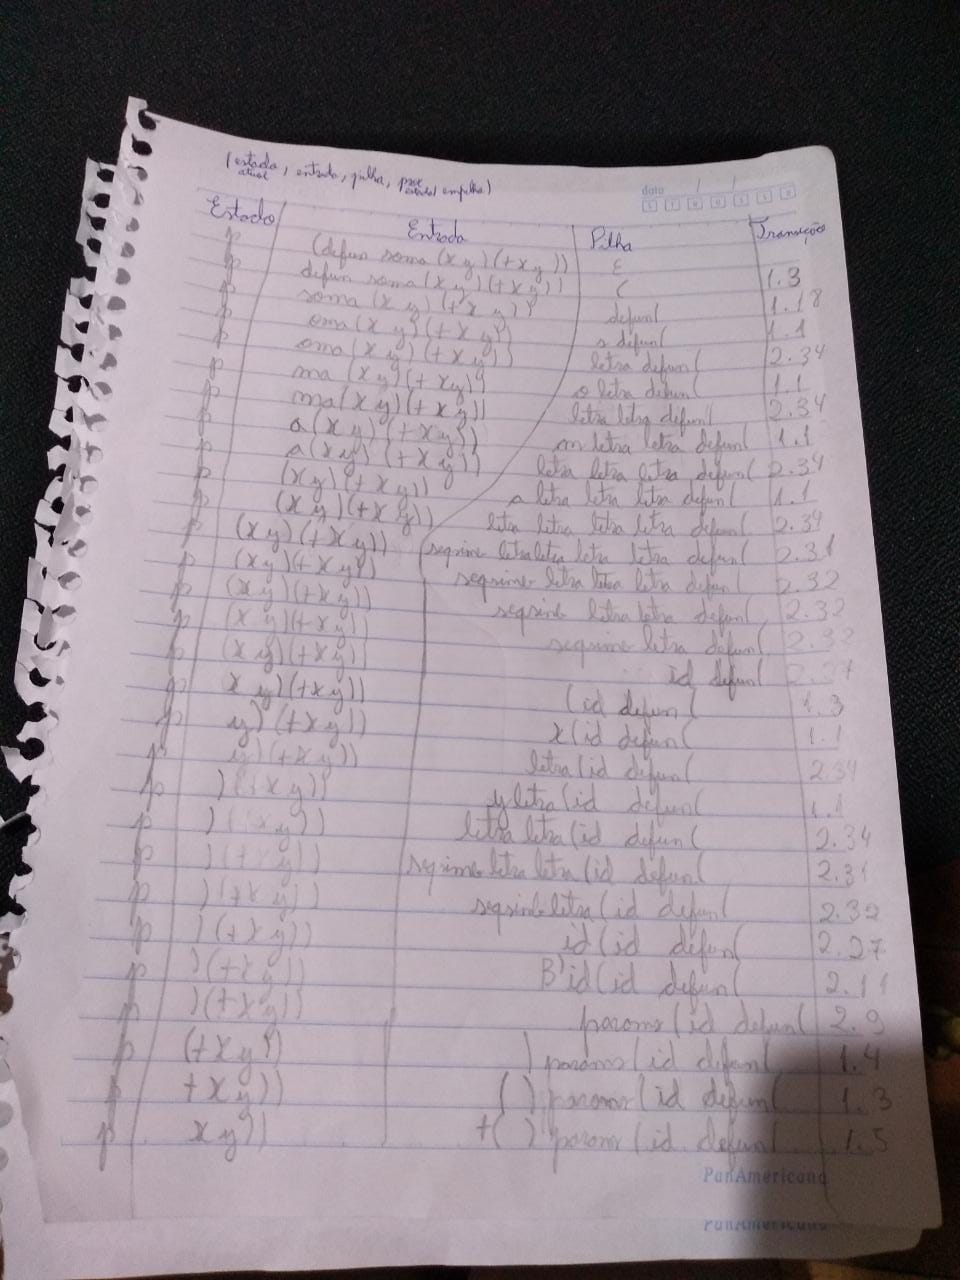 (estado atual, entrada, pilha, prox estado, empilha)
data / /
Estado Entrada Pilha Transições
p (defun soma (x y) (+ x y)) ε
p defun soma (x y) (+ x y)) ( 1.3
p soma (x y) (+ x y)) defun( 1.18
p oma (x y) (+ x y)) s defun( 1.1
p oma (x y) (+ x y)) letra defun( 2.34
p ma (x y) (+ x y)) o letra defun( 1.1
p ma (x y) (+ x y)) letra letra defun( 2.34
p a (x y) (+ x y)) m letra letra defun( 1.1
p a (x y) (+ x y)) letra letra letra defun( 2.34
p (x y) (+ x y)) a letra letra letra defun( 1.1
p (x y) (+ x y)) letra letra letra letra defun( 2.34
p (x y) (+ x y)) seqsimb letra letra letra letra defun( 2.31
p (x y) (+ x y)) seqsimb letra letra letra defun( 2.32
p (x y) (+ x y)) seqsimb letra letra defun( 2.32
p (x y) (+ x y)) seqsimb letra defun( 2.32
p (x y) (+ x y)) id defun( 2.27
p x y) (+ x y)) (id defun( 1.3
p y) (+ x y)) x(id defun( 1.1
p y) (+ x y)) letra(id defun( 2.34
p ) (+ x y)) y letra(id defun( 1.1
p ) (+ x y)) letra letra(id defun( 2.34
p ) (+ x y)) seqsimb letra letra(id defun( 2.31
p ) (+ x y)) seqsimb letra(id defun( 2.32
p ) (+ x y)) id(id defun( 2.27
p ) (+ x y)) B' id(id defun( 2.11
p ) (+ x y)) params(id defun( 2.9
p (+ x y)) ) params(id defun( 1.4
p + x y)) ( ) params(id defun( 1.3
p x y)) +( ) params(id defun( 1.5
PanAmericana
PanAmericana